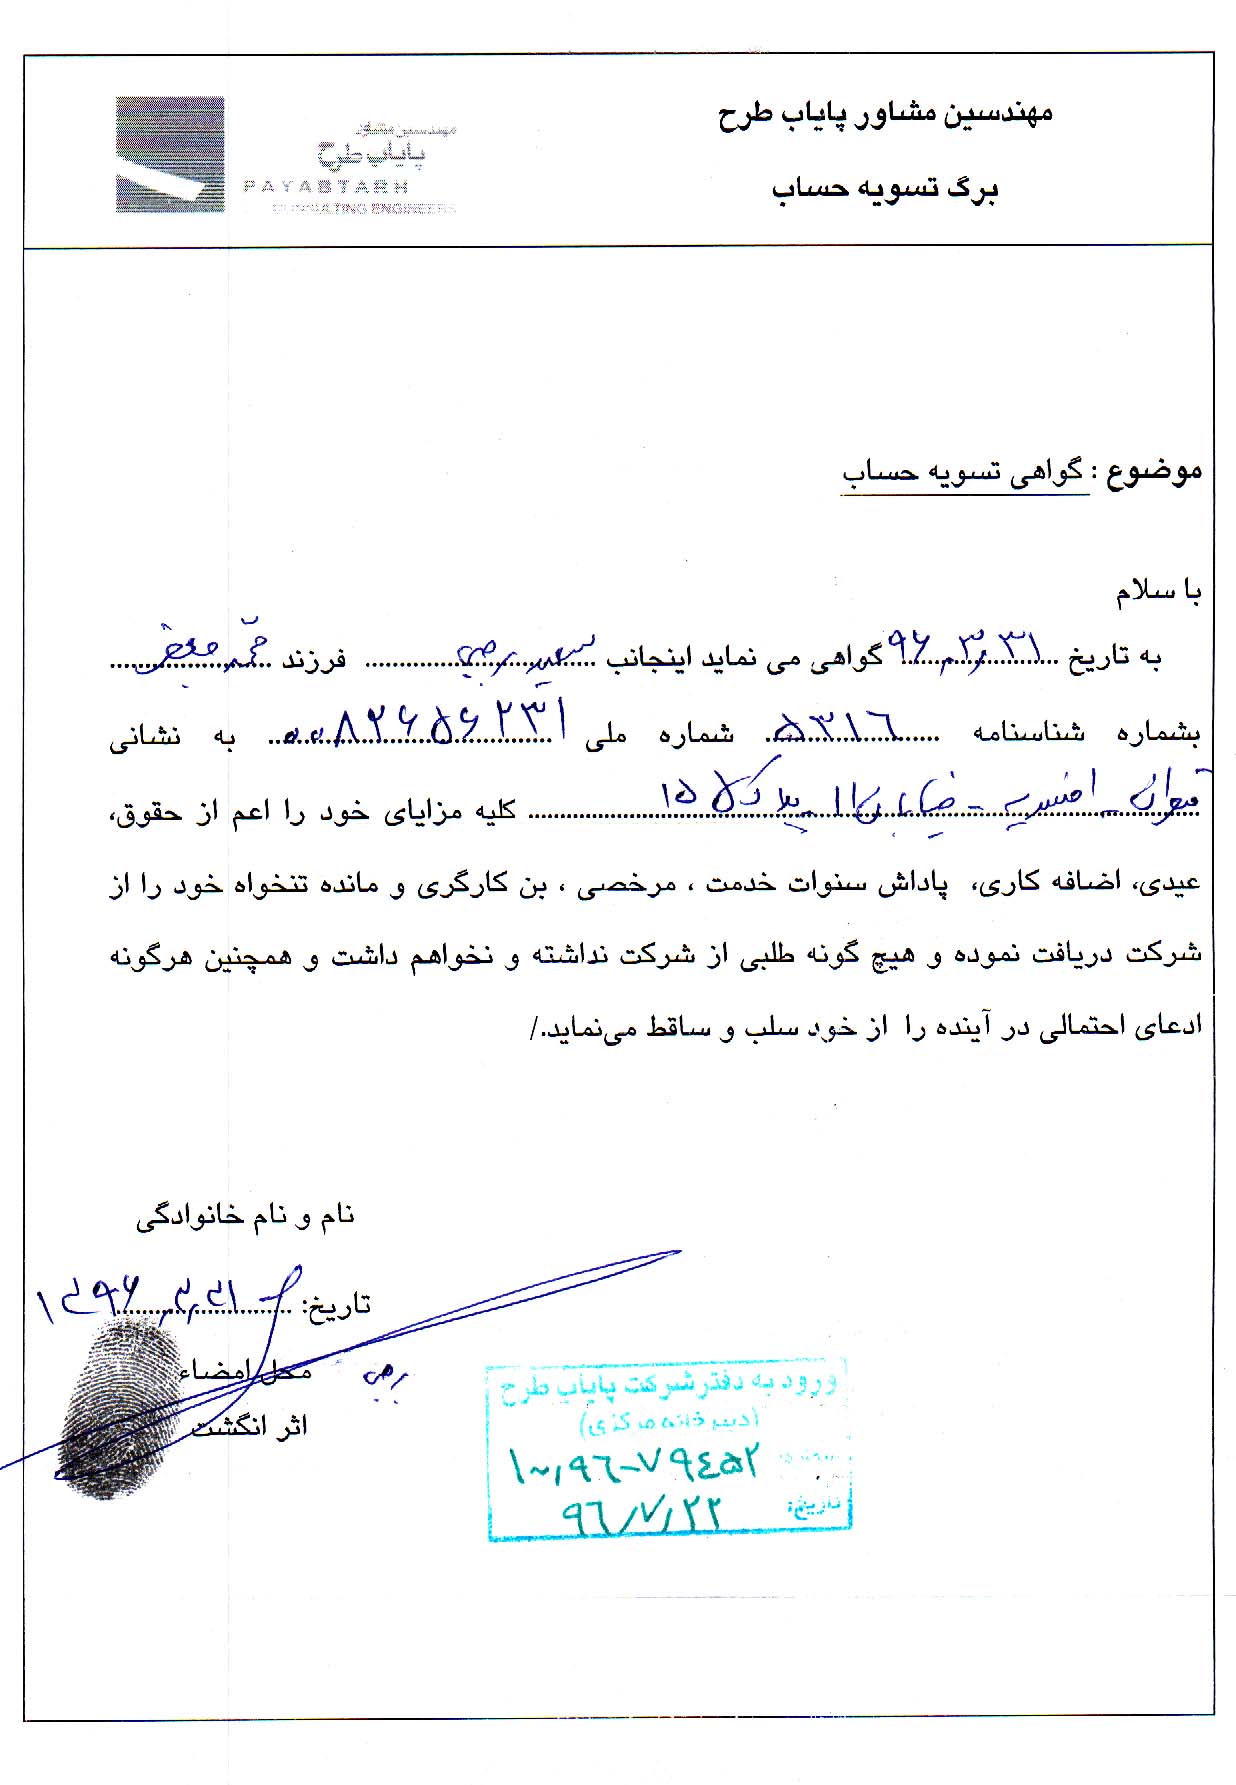 مهندسین مشاور پایاب طرح
برگ تسویه حساب
مهندسین مشاور
پایاب طرح
PAYABTARH
CONSULTING ENGINEERS
موضوع : گواهی تسویه حساب
با سلام
به تاریخ ۹۶٫۳٫۳۱ گواهی می نماید اینجانب سعید رجبی فرزند محمد جعفر
بشماره شناسنامه ۵۳۱۶ شماره ملی ۰۰۸۲۶۵۶۲۳۱ به نشانی
تهران - - خیابان - پلاک ۱۵ کلیه مزایای خود را اعم از حقوق،
عیدی، اضافه کاری، پاداش سنوات خدمت ، مرخصی ، بن کارگری و مانده تنخواه خود را از
شرکت دریافت نموده و هیچ گونه طلبی از شرکت نداشته و نخواهم داشت و همچنین هرگونه
ادعای احتمالی در آینده را از خود سلب و ساقط می‌نماید./
نام و نام خانوادگی
تاریخ: ۱۳۹۶٫۳٫۳۱
محل امضاء رجبی
اثر انگشت
ورود به دفتر شرکت پایاب طرح
(دبیرخانه مرکزی)
۱۰٫۹۶-۷۹۴۵۲
تاریخ: ۹۶/۷/۲۲